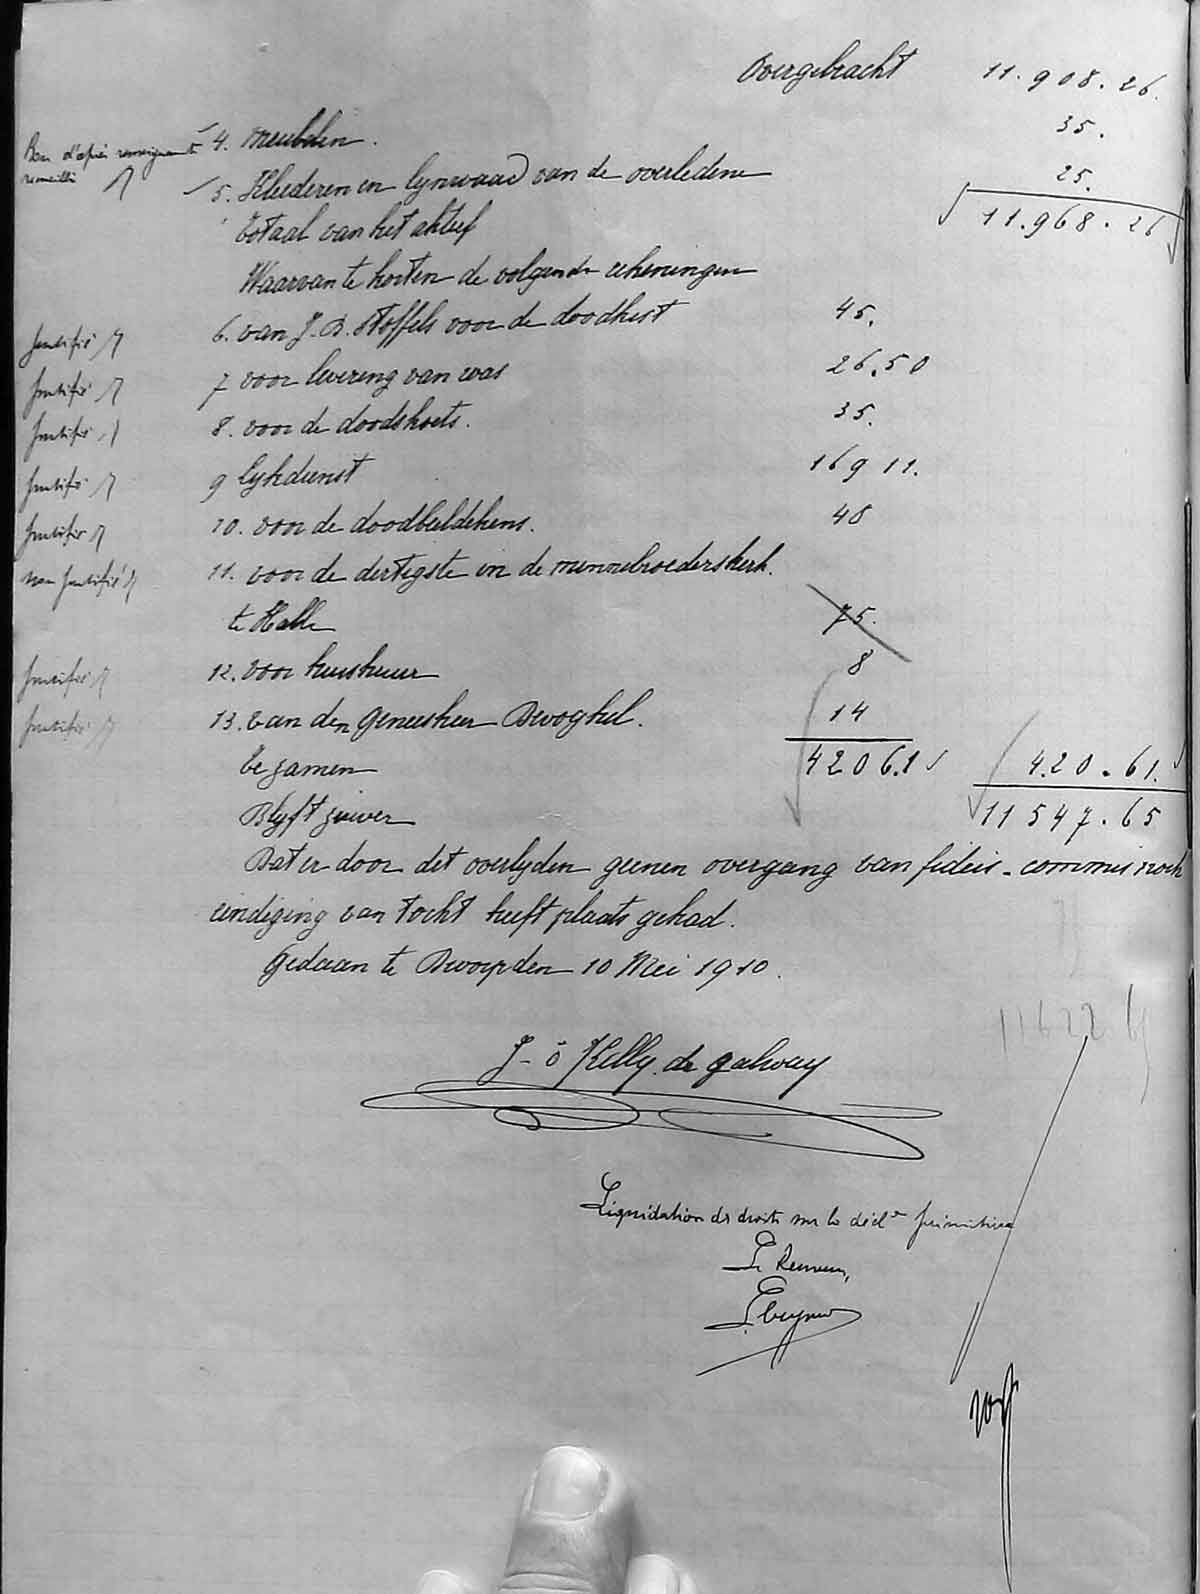 Overgebracht 11.908.26.
4. meubelen. 35.
Bon d'après renseignements
recueillis
5. Kleederen en lynwaad van de overledene 25.
Totaal van het aktief 11.968.26
Waarvan te korten de volgende rekeningen
Justifié 6. van J. B. Stoffels voor de doodkist 45.
Justifié 7 voor levering van was 26.50
Justifié 8. voor de doodskoets. 35.
Justifié 9 lykdienst 169 11.
Justifié 10. voor de doodbeeldekens. 48
non justifié 11. voor de dertigste in de minnebroederskerk.
te Halle 75.
Justifié 12. voor huishuur 8
Justifié 13. van den geneesheer Dwoghel. 14
te zamen 420 61 420.61.
Blyft zuiver 11547.65
Dat er door dit overlyden geenen overgang van fideis-commis noch
eindiging van tocht heeft plaats gehad.
Gedaan te Dworp den 10 Mei 1910.
11622 61
J. ô Kelly de galway
Liquidation des droits sur la décl.on primitive
Le Receveur,